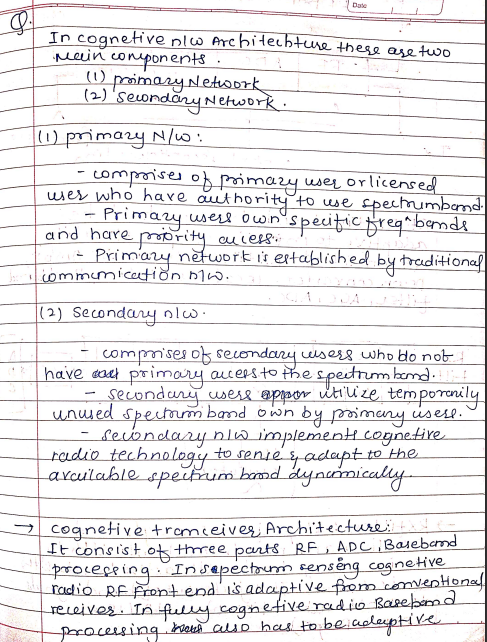 Date
Q.
In cognetive n/w Architechture these are two
main components.
(1) primary Network
(2) Secondary Network.
(1) primary N/w:
- comprises of primary user or licensed
user who have authority to use spectrum band.
- Primary users own specific freqⁿ bands
and have priority access.
- Primary network is established by traditional
communication n/w.
(2) Secondary n/w.
- comprises of secondary users who do not
have primary access to the spectrum band.
- secondary users utilize temporarily
unused spectrum band own by primary users.
- Secondary n/w implements cognetive
radio technology to sense & adapt to the
available spectrum band dynamically.
→ cognetive tranceiver Architecture:
It consist of three parts RF, ADC, Baseband
processing. In spectrum sensing cognetive
radio RF front end is adaptive from conventional
receiver. In fully cognetive radio Baseband
processing also has to be adaptive